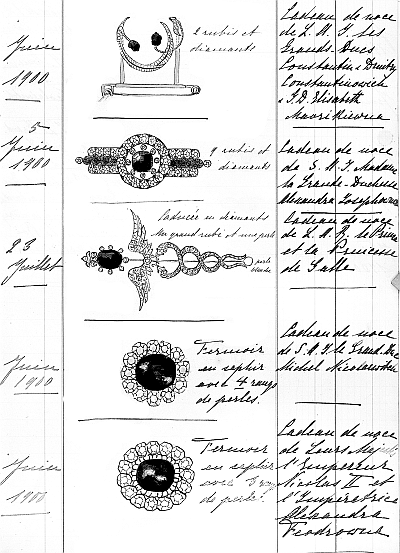 Juin
1900
2 rubis et
diamants
Cadeau de noce
de L. A. I. les
Grands-Ducs
Constantin & Dmitry
Constantinowich
& J. D. Elisabeth
Mavrikievna
5
Juin
1900
9 rubis et
diamants
Cadeau de noce
de S. A. I. Madame
la Grande-Duchesse
Alexandra Josephowna
23
Juillet
Caducée en diamants
Un grand rubis et une perle
perle
blanche
Cadeau de noce
de L. A. R. le Prince
et la Princesse
de Galle
Juin
1900
Fermoir
en saphir
avec 4 rangs
de perles.
Cadeau de noce
de S. A. I. le Grand Duc
Michel Nicolaewitch
Juin
1900
Fermoir
en saphir
avec
de perles.
Cadeau de noce
de Leurs Majestés
l'Empereur
Nicolas II et
l'Impératrice
Alexandra
Feodrowna